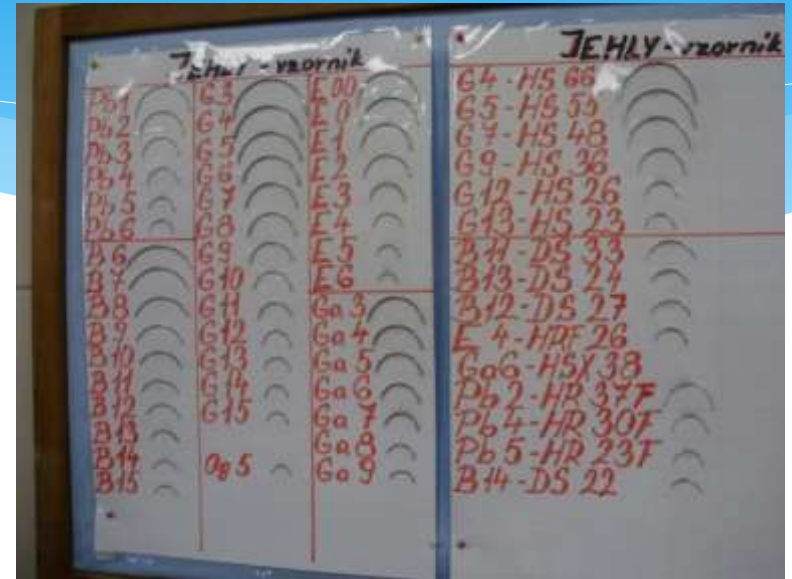 JEHLY - vzornik
Pb 1
Pb 2
Pb 3
Pb 4
Pb 5
Pb 6
B 6
B 7
B 8
B 9
B 10
B 11
B 12
B 13
B 14
B 15
G 3
G 4
G 5
G 6
G 7
G 8
G 9
G 10
G 11
G 12
G 13
G 14
G 15
Og 5
E 00
E 0
E 1
E 2
E 3
E 4
E 5
E 6
Ga 3
Ga 4
Ga 5
Ga 6
Ga 7
Ga 8
Ga 9
JEHLY - vzornik
G 4 - HS 66
G 5 - HS 55
G 7 - HS 48
G 9 - HS 36
G 12 - HS 26
G 13 - HS 23
B 11 - DS 33
B 13 - DS 24
B 12 - DS 27
E 4 - HRF 26
Ga 6 - HSX 38
Pb 2 - HR 37F
Pb 4 - HR 30F
Pb 5 - HR 23F
B 14 - DS 22